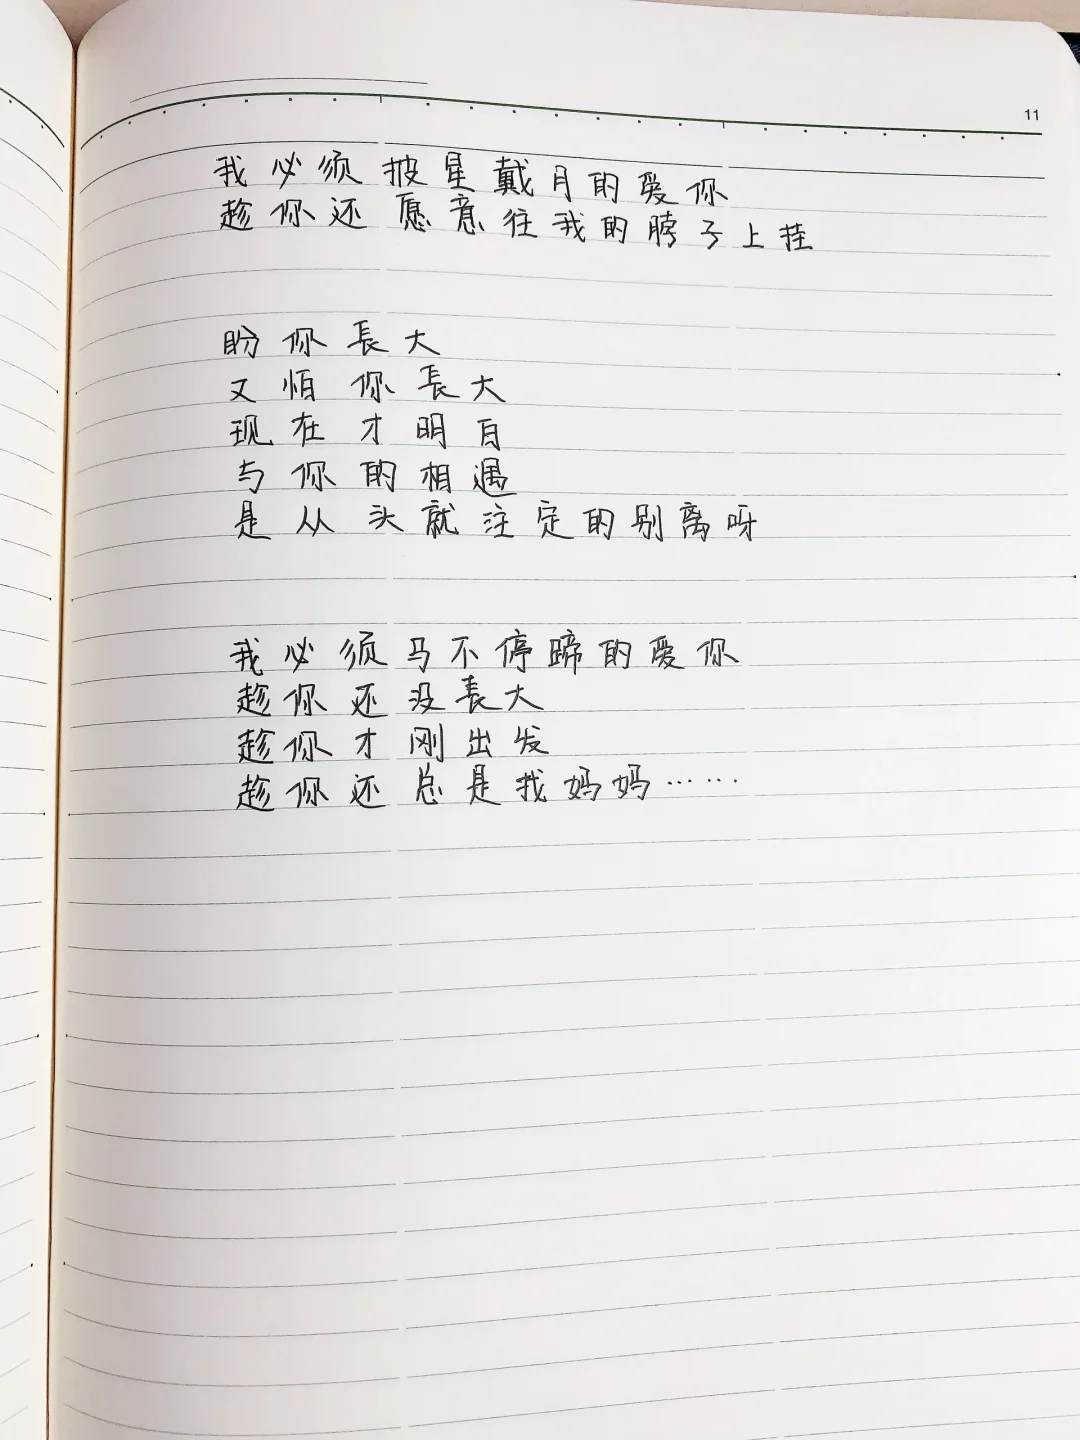 11
我必须披星戴月的爱你
趁你还愿意往我的脖子上挂
盼你長大
又怕你長大
现在才明白
与你的相遇
是从头就注定的别离呀
我必须马不停蹄的爱你
趁你还没長大
趁你才刚出发
趁你还总是找妈妈……